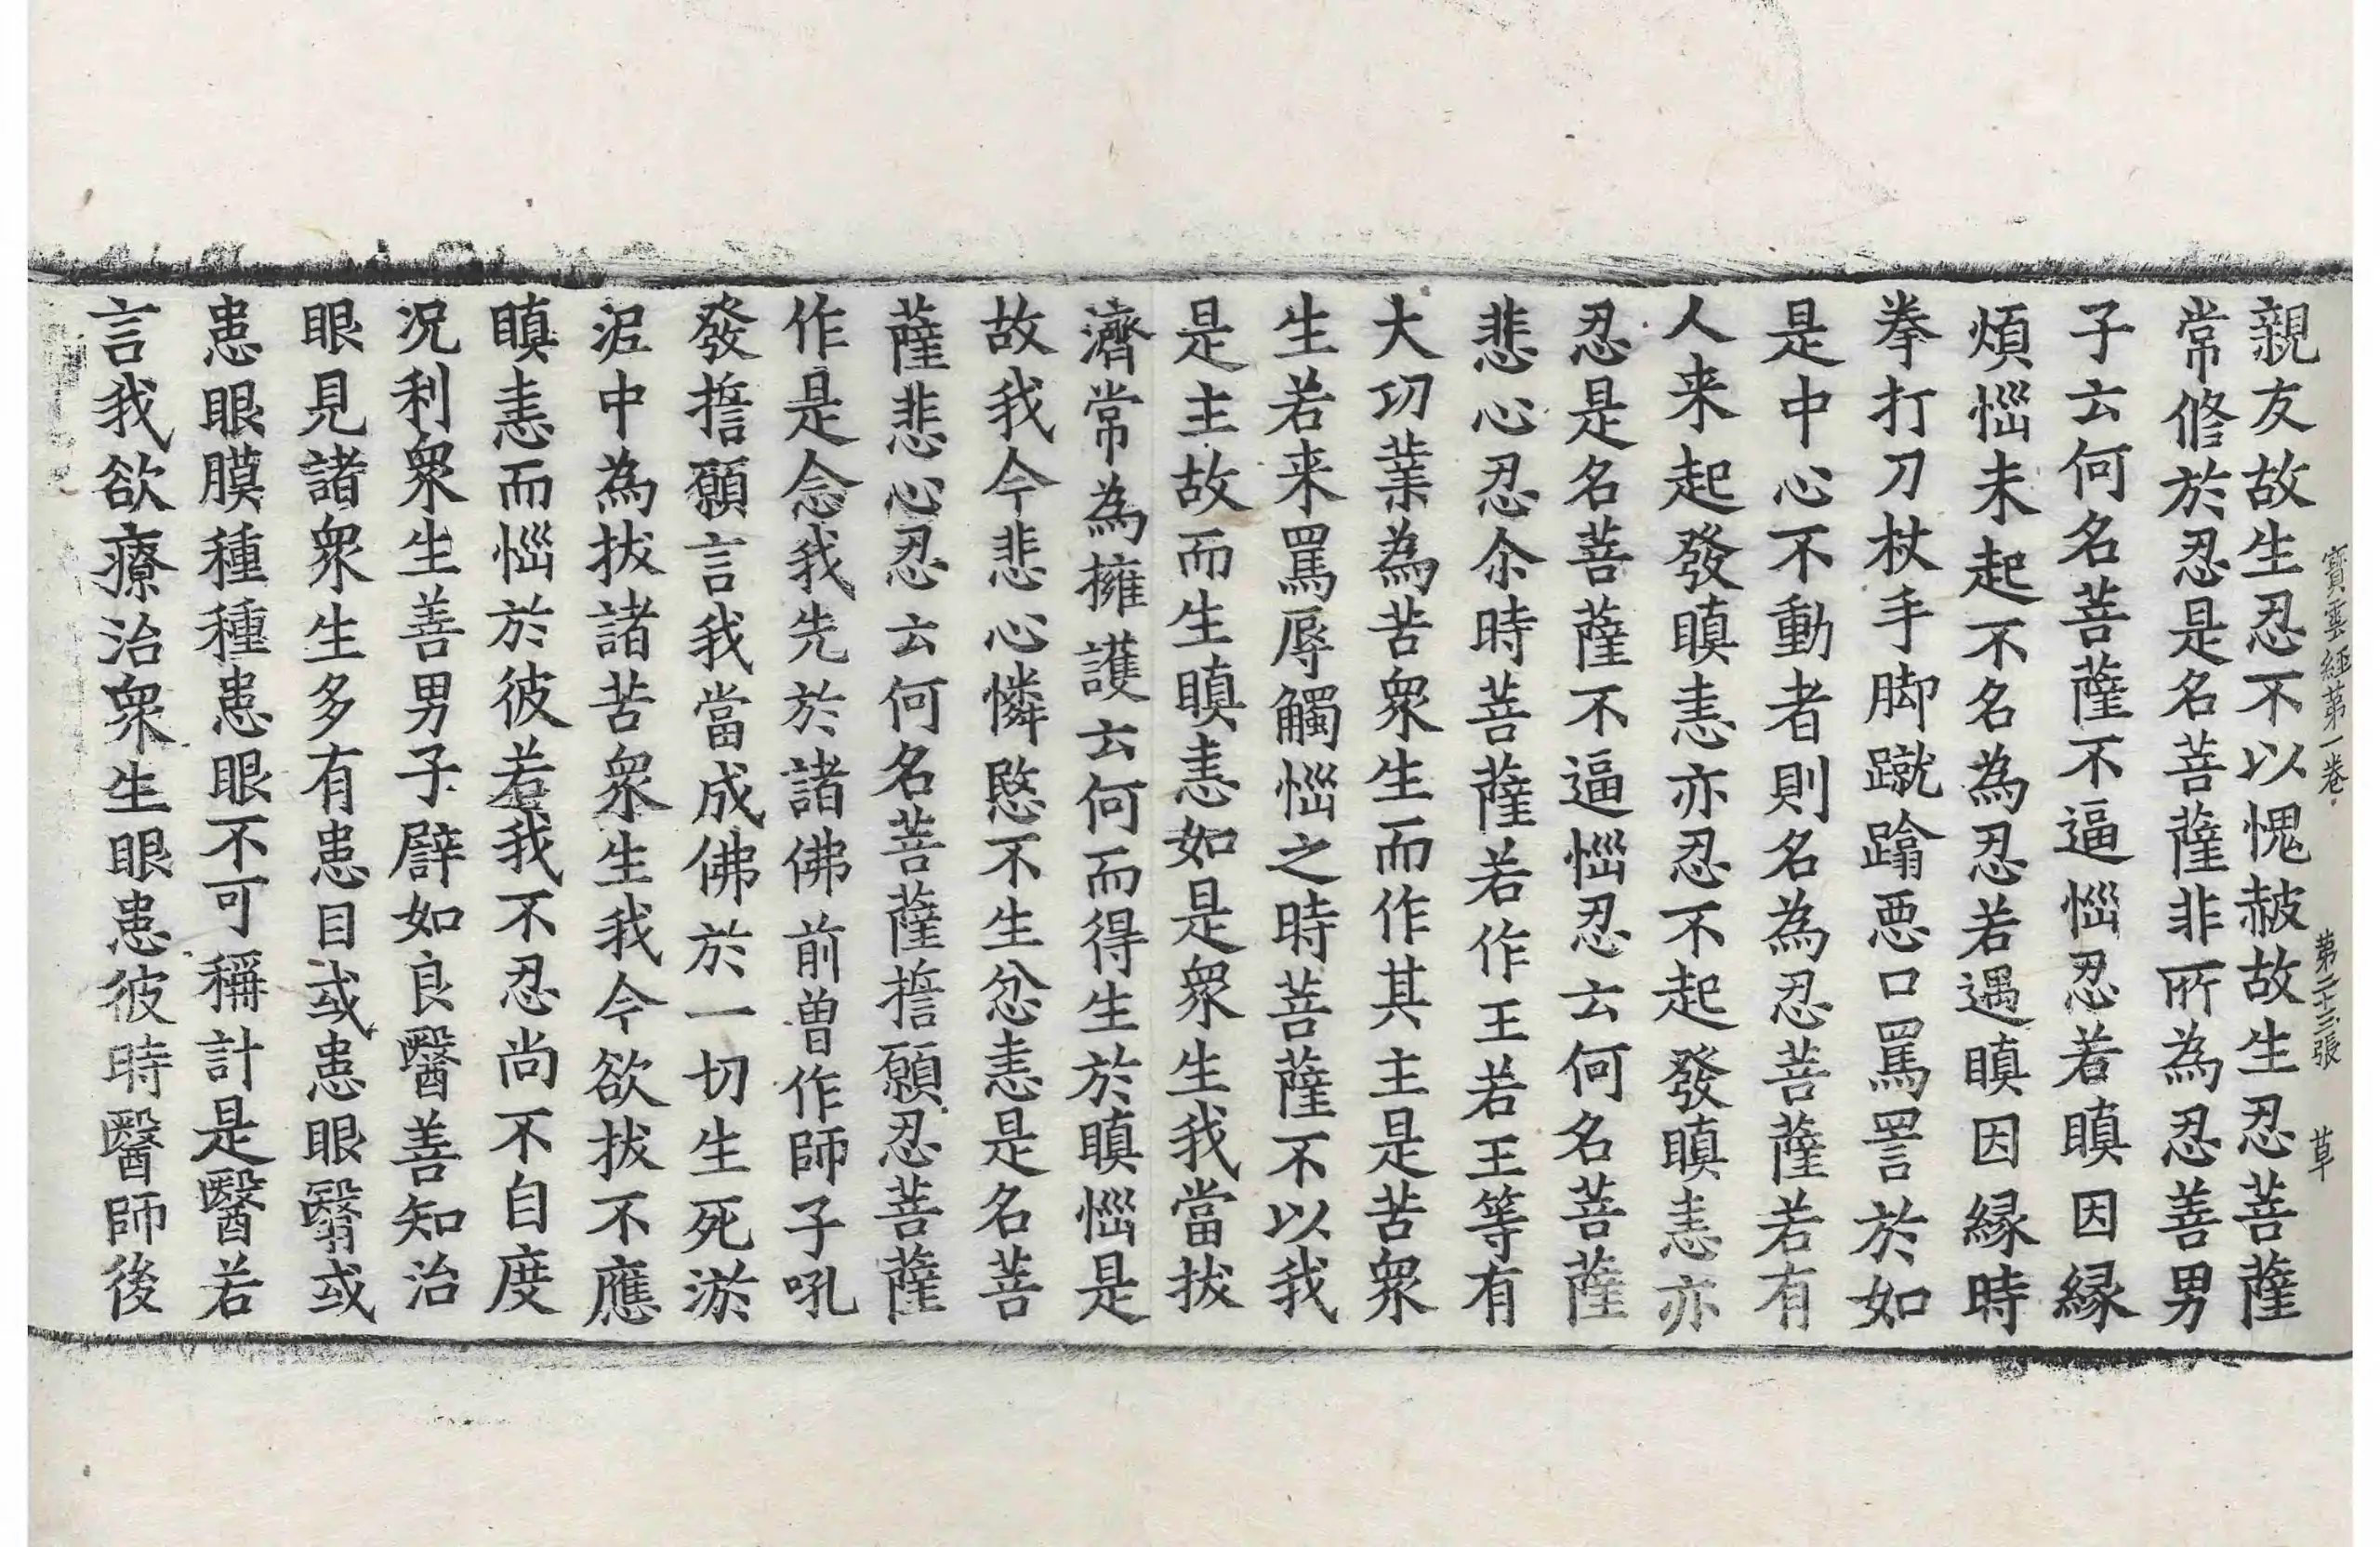 寶雲經苐一卷 苐二十三張 草
親友故生忍不以愧赧故生忍菩薩
常修於忍是名菩薩非所為忍善男
子云何名菩薩不逼惱忍若瞋因縁
煩惱未起不名為忍若遇瞋因縁時
拳打刀杖手脚蹴蹹惡口罵詈於如
是中心不動者則名為忍菩薩若有
人来起發瞋恚亦忍不起發瞋恚亦
忍是名菩薩不逼惱忍云何名菩薩
悲心忍尒時菩薩若作王若王等有
大功業為苦衆生而作其主是苦衆
生若来罵辱觸惱之時菩薩不以我
是主故而生瞋恚如是衆生我當拔
濟常為擁護云何而得生於瞋惱是
故我今悲心憐愍不生忿恚是名菩
薩悲心忍云何名菩薩誓願忍菩薩
作是念我先於諸佛前曽作師子吼
發誓願言我當成佛於一切生死淤
泥中為拔諸苦衆生我今欲拔不應
瞋恚而惱於彼若我不忍尚不自度
况利衆生善男子譬如良醫善知治
眼見諸衆生多有患目或患眼瞖或
患眼膜種種患眼不可稱計是醫若
言我欲療治衆生眼患彼時醫師後